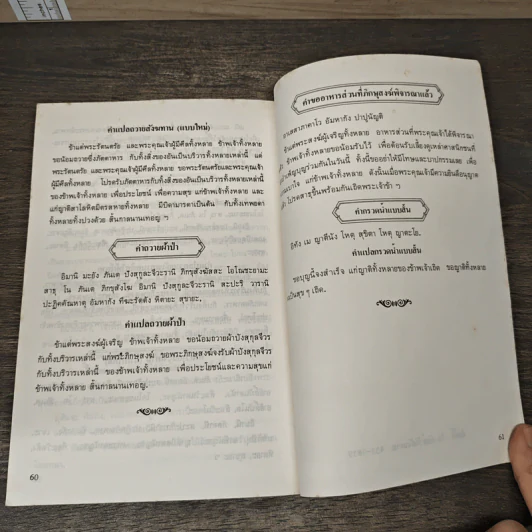 คำแปลถวายสังฆทาน (แบบใหม่)
ข้าแต่พระรัตนตรัย และพระคุณเจ้าผู้มีศีลทั้งหลาย ข้าพเจ้าทั้งหลาย
ขอน้อมถวายซึ่งภัตตาหาร กับทั้งสิ่งของอันเป็นบริวารทั้งหลายเหล่านี้ แด่
พระรัตนตรัย และพระคุณเจ้าผู้มีศีลทั้งหลาย ขอพระรัตนตรัยและพระคุณเจ้า
ผู้มีศีลทั้งหลาย โปรดรับภัตตาหารกับทั้งสิ่งของอันเป็นบริวารทั้งหลายเหล่านี้
ของข้าพเจ้าทั้งหลาย เพื่อประโยชน์ เพื่อความสุข แก่ข้าพเจ้าทั้งหลาย และ
แก่ญาติสาโลหิตมิตรสหายทั้งหลาย มีบิดามารดาเป็นต้น กับทั้งเทพยดา
ทั้งหลายทั่วปวงด้วย สิ้นกาลนานเทอญ ฯ
คำถวายผ้าป่า
อิมานิ มะยัง ภันเต ปังสุกูละจีวะรานิ ภิกขุสังฆัสสะ โอโณชะยามะ
สาธุ โน ภันเต ภิกขุสังโฆ อิมานิ ปังสุกูละจีวะรานิ สะปะริ วารานิ
ปะฏิคคัณหาตุ อัมหากัง ทีฆะรัตตัง หิตายะ สุขายะ.
คำแปลถวายผ้าป่า
ข้าแต่พระสงฆ์ผู้เจริญ ข้าพเจ้าทั้งหลาย ขอน้อมถวายผ้าบังสุกุลจีวร
กับทั้งบริวารเหล่านี้ แก่พระภิกษุสงฆ์ ขอพระภิกษุสงฆ์จงรับผ้าบังสุกุลจีวร
กับทั้งบริวารเหล่านี้ ของข้าพเจ้าทั้งหลาย เพื่อประโยชน์และความสุขแก่
ข้าพเจ้าทั้งหลาย สิ้นกาลนานเทอญ.
60
คำขออาหารส่วนที่ภิกษุสงฆ์พิจารณาแล้ว
อัมหากัง ปาปุนันติ
ข้าแต่พระสงฆ์ผู้เจริญทั้งหลาย อาหารส่วนที่พระคุณเจ้าได้พิจารณา
ข้าพเจ้าทั้งหลายขอน้อมรับไว้ เพื่อต้อนรับเลี้ยงดูเหล่าสาธุชนที่
บำเพ็ญบุญร่วมกันในวันนี้ ทั้งนี้ขออย่าให้มีโทษและบาปกรรมเลย เพื่อ
แก่ข้าพเจ้าทั้งหลาย ดังนั้นเมื่อพระคุณเจ้ามีความยินดีอนุญาต
โปรดสาธุขึ้นพร้อมกันเชิดพระเจ้าข้า ฯ
คำกรวดน้ำแบบสั้น
อิทัง เม ญาตีนัง โหตุ สุขิตา โหตุ ญาตะโย.
คำแปลกรวดน้ำแบบสั้น
ขอบุญนี้จงสำเร็จ แก่ญาติทั้งหลายของข้าพเจ้าเถิด ขอญาติทั้งหลาย
เป็นสุข ๆ เถิด.
61